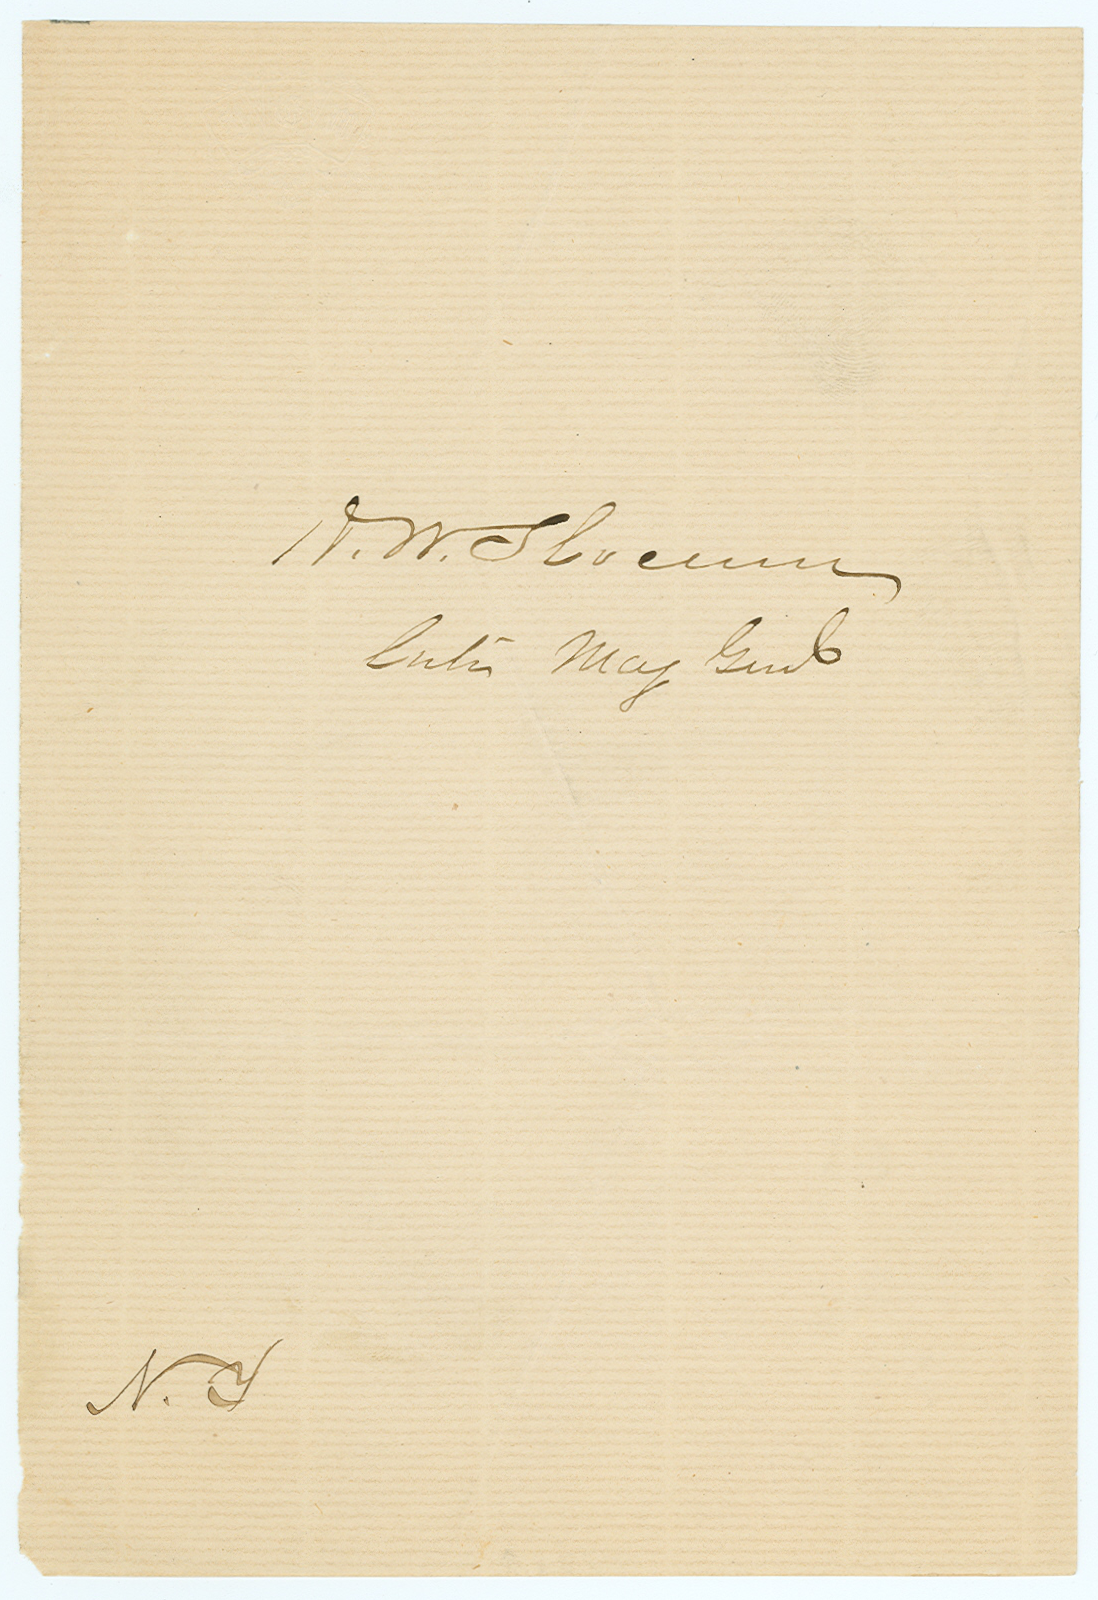 H. W. Slocum
Late Maj Genl
N. Y